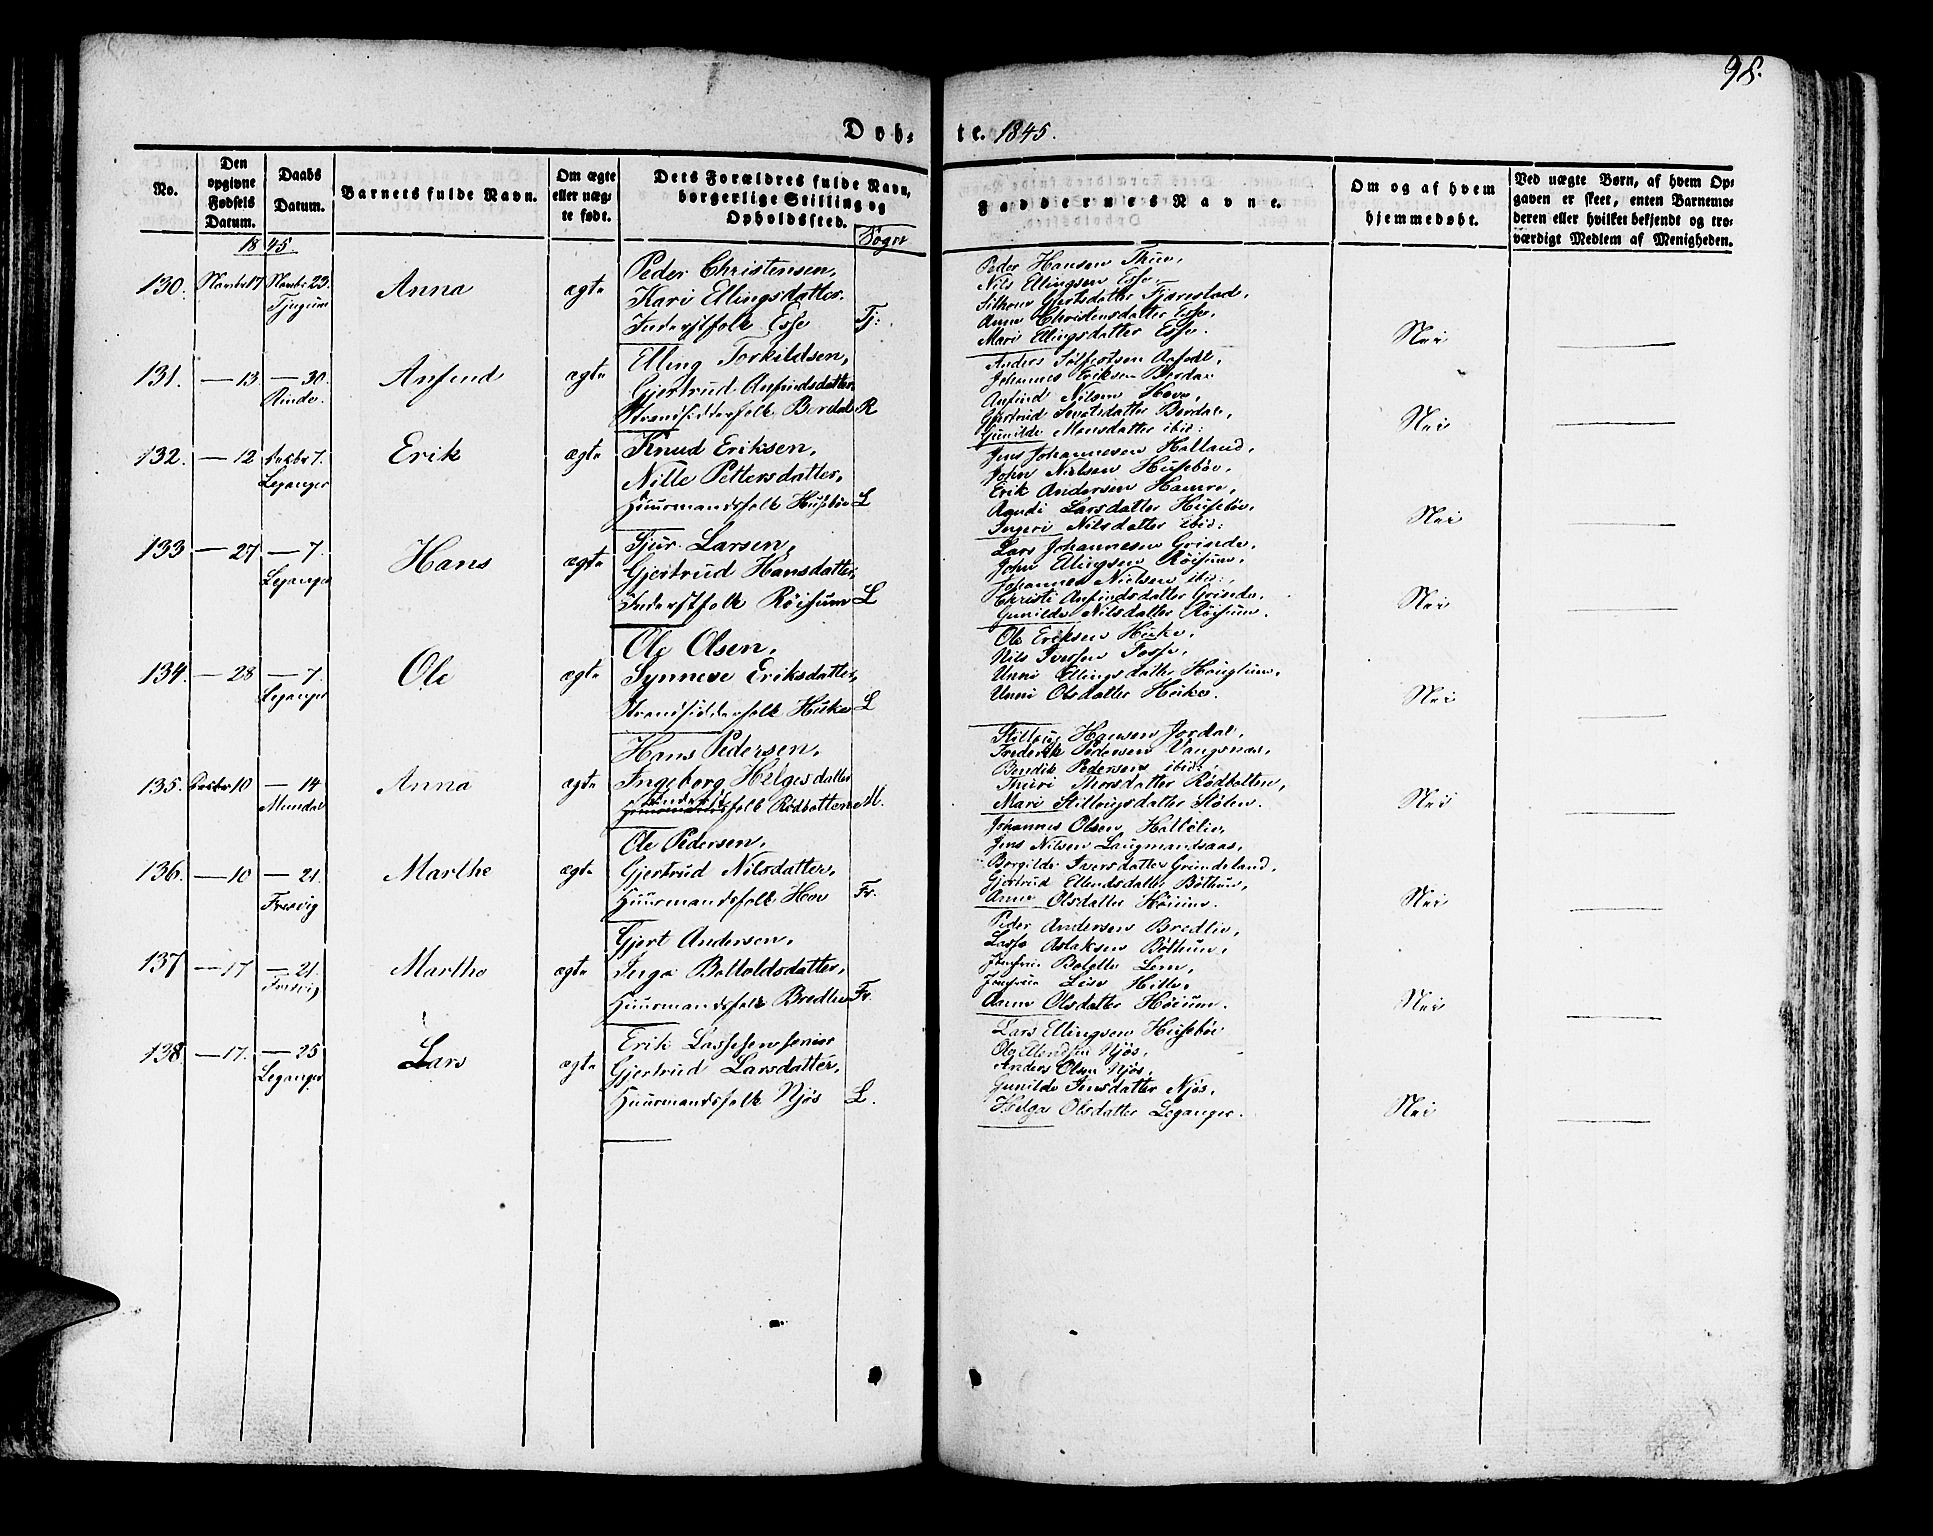 98.
Døb-te. 1845.
No.
Den opgivne Fødsels Datum.
Daabs Datum.
Barnets fulde Navn.
Om ægte eller uægte født.
Dets Forældres fulde Navn, borgerlige Stilling og Opholdssted.
Sogn
Faddernes Navne.
Om og af hvem hjemmedøbt.
Ved uægte Børn, af hvem Opgaven er skeet, enten Barnemoderen eller hvilket bekjendt og troværdigt Medlem af Menigheden.
1845.
130. Novbr 17 Novbr 23. Tjugum
Anna
ægte
Peder Christensen,
Kari Ellingsdatter.
Inderstfolk Esse Tj:
Peder Hansen Thue,
Nils Ellingsen Esse,
Gjertsdatter Fjærestad,
Anna Christensdatter Esse,
Mari Ellingsdatter Esse.
Nei
131. — 13 — 30. Rinde.
Anfind
ægte
Elling Torkildsen,
Gjertrud Anfindsdatter,
Strandsidderfolk Berdal R
Anders
Johannes Eriksen Berdal
Anfind Nilsen Hove,
Gjertrud Berdal,
Gunilde Monsdatter ibid:
Nei
132. — 12 Decbr 7. Leganger
Erik
ægte
Knud Eriksen,
Nille Pettersdatter,
Huusmandsfolk Husebøe L
Jens Johannesen Halland,
John Nielsen Husebøe,
Erik Andersen Hamre,
Larsdatter Husebøe,
Ingeri Nilsdatter ibid:
Nei
133 — 27 — 7. Leganger
Hans
ægte
Sjur Larsen,
Gjertrud Hansdatter,
Inderstfolk Røisum L
Lars Johannesen Grinde,
John Ellingsen Røisum,
Johannes Nielsen ibid:,
Christi Anfindsdatter Grinde,
Gunilde Nilsdatter Røisum.
Nei
134. — 28 — 7. Leganger
Ole
ægte
Ole Olsen,
Synneve Eriksdatter,
Strandsidderfolk L
Ole Eriksen
Nils Iversen Fosse,
Unni Ellingsdatter Houglum,
Unni Olsdatter
Nei
135. Decbr 10 — 14 Mundal
Anna
ægte
Hans Pedersen,
Ingeborg Helgesdatter
Inderstfolk Rødbotten M.
Hansen Jordal,
Frederik Pedersen Vangsnæs,
Bendik Pedersen ibid:,
Thuri Thorsdatter Rødbotten,
Mari
Nei
136. — 10 — 21. Fresvig
Marthe
ægte
Ole Pedersen,
Gjertrud Nilsdatter,
Huusmandsfolk Hov Fr.
Johannes Olsen Hallelie,
Jens Nilsen Laugmandsaas,
Borgilde Iversdatter Grindeland,
Gjertrud Ellendsdatter Bøthun,
Anna Olsdatter Høium.
Nei
137 — 17 — 21. Fresvig
Marthe
ægte
Gjert Andersen,
Inga Botholdsdatter,
Huusmandsfolk Bredlie Fr.
Peder Andersen Bredlie,
Lasse Aslaksen Bøthun,
Jomfrue Lem,
Jomfrue Lise Hille,
Anna Olsdatter Høium.
Nei
138 — 17. — 25 Leganger
Lars
ægte
Erik Lassesen senior
Gjertrud Larsdatter,
Huusmandsfolk Njøs L.
Lars Ellingsen Husebøe
Ole Ellendsen Njøs,
Anders Olsen Njøs,
Gunilde Jensdatter Njøs,
Helga Olsdatter Leganger.
Nei